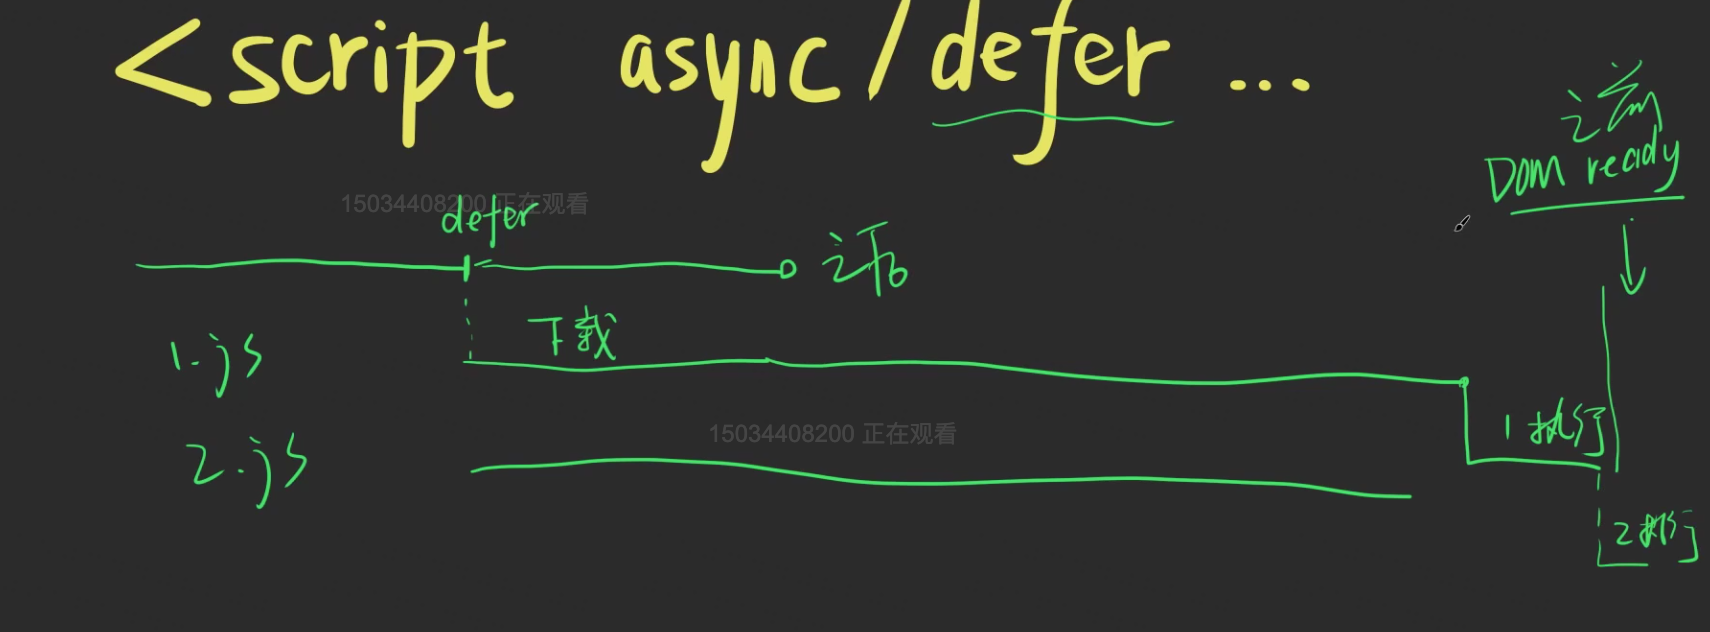 <script async/defer ...
DOM ready
15034408200 正在观看
defer
下载
1.js
15034408200 正在观看
1 执行
2.js
2 执行